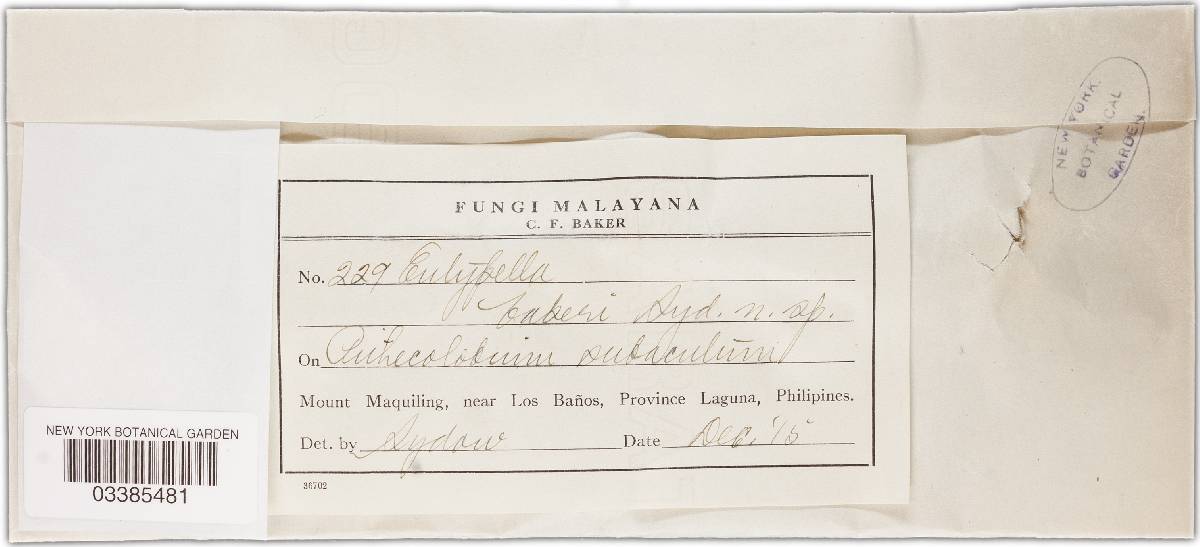 FUNGI MALAYANA
C. F. BAKER
No. 229 Entypella
bakeri Syd. n. sp.
On Pithecolobium subacutum
Mount Maquiling, near Los Baños, Province Laguna, Philipines.
Det. by Sydow Date Dec. '15
36702
NEW YORK BOTANICAL GARDEN
03385481
NEW YORK
BOTANICAL
GARDEN.